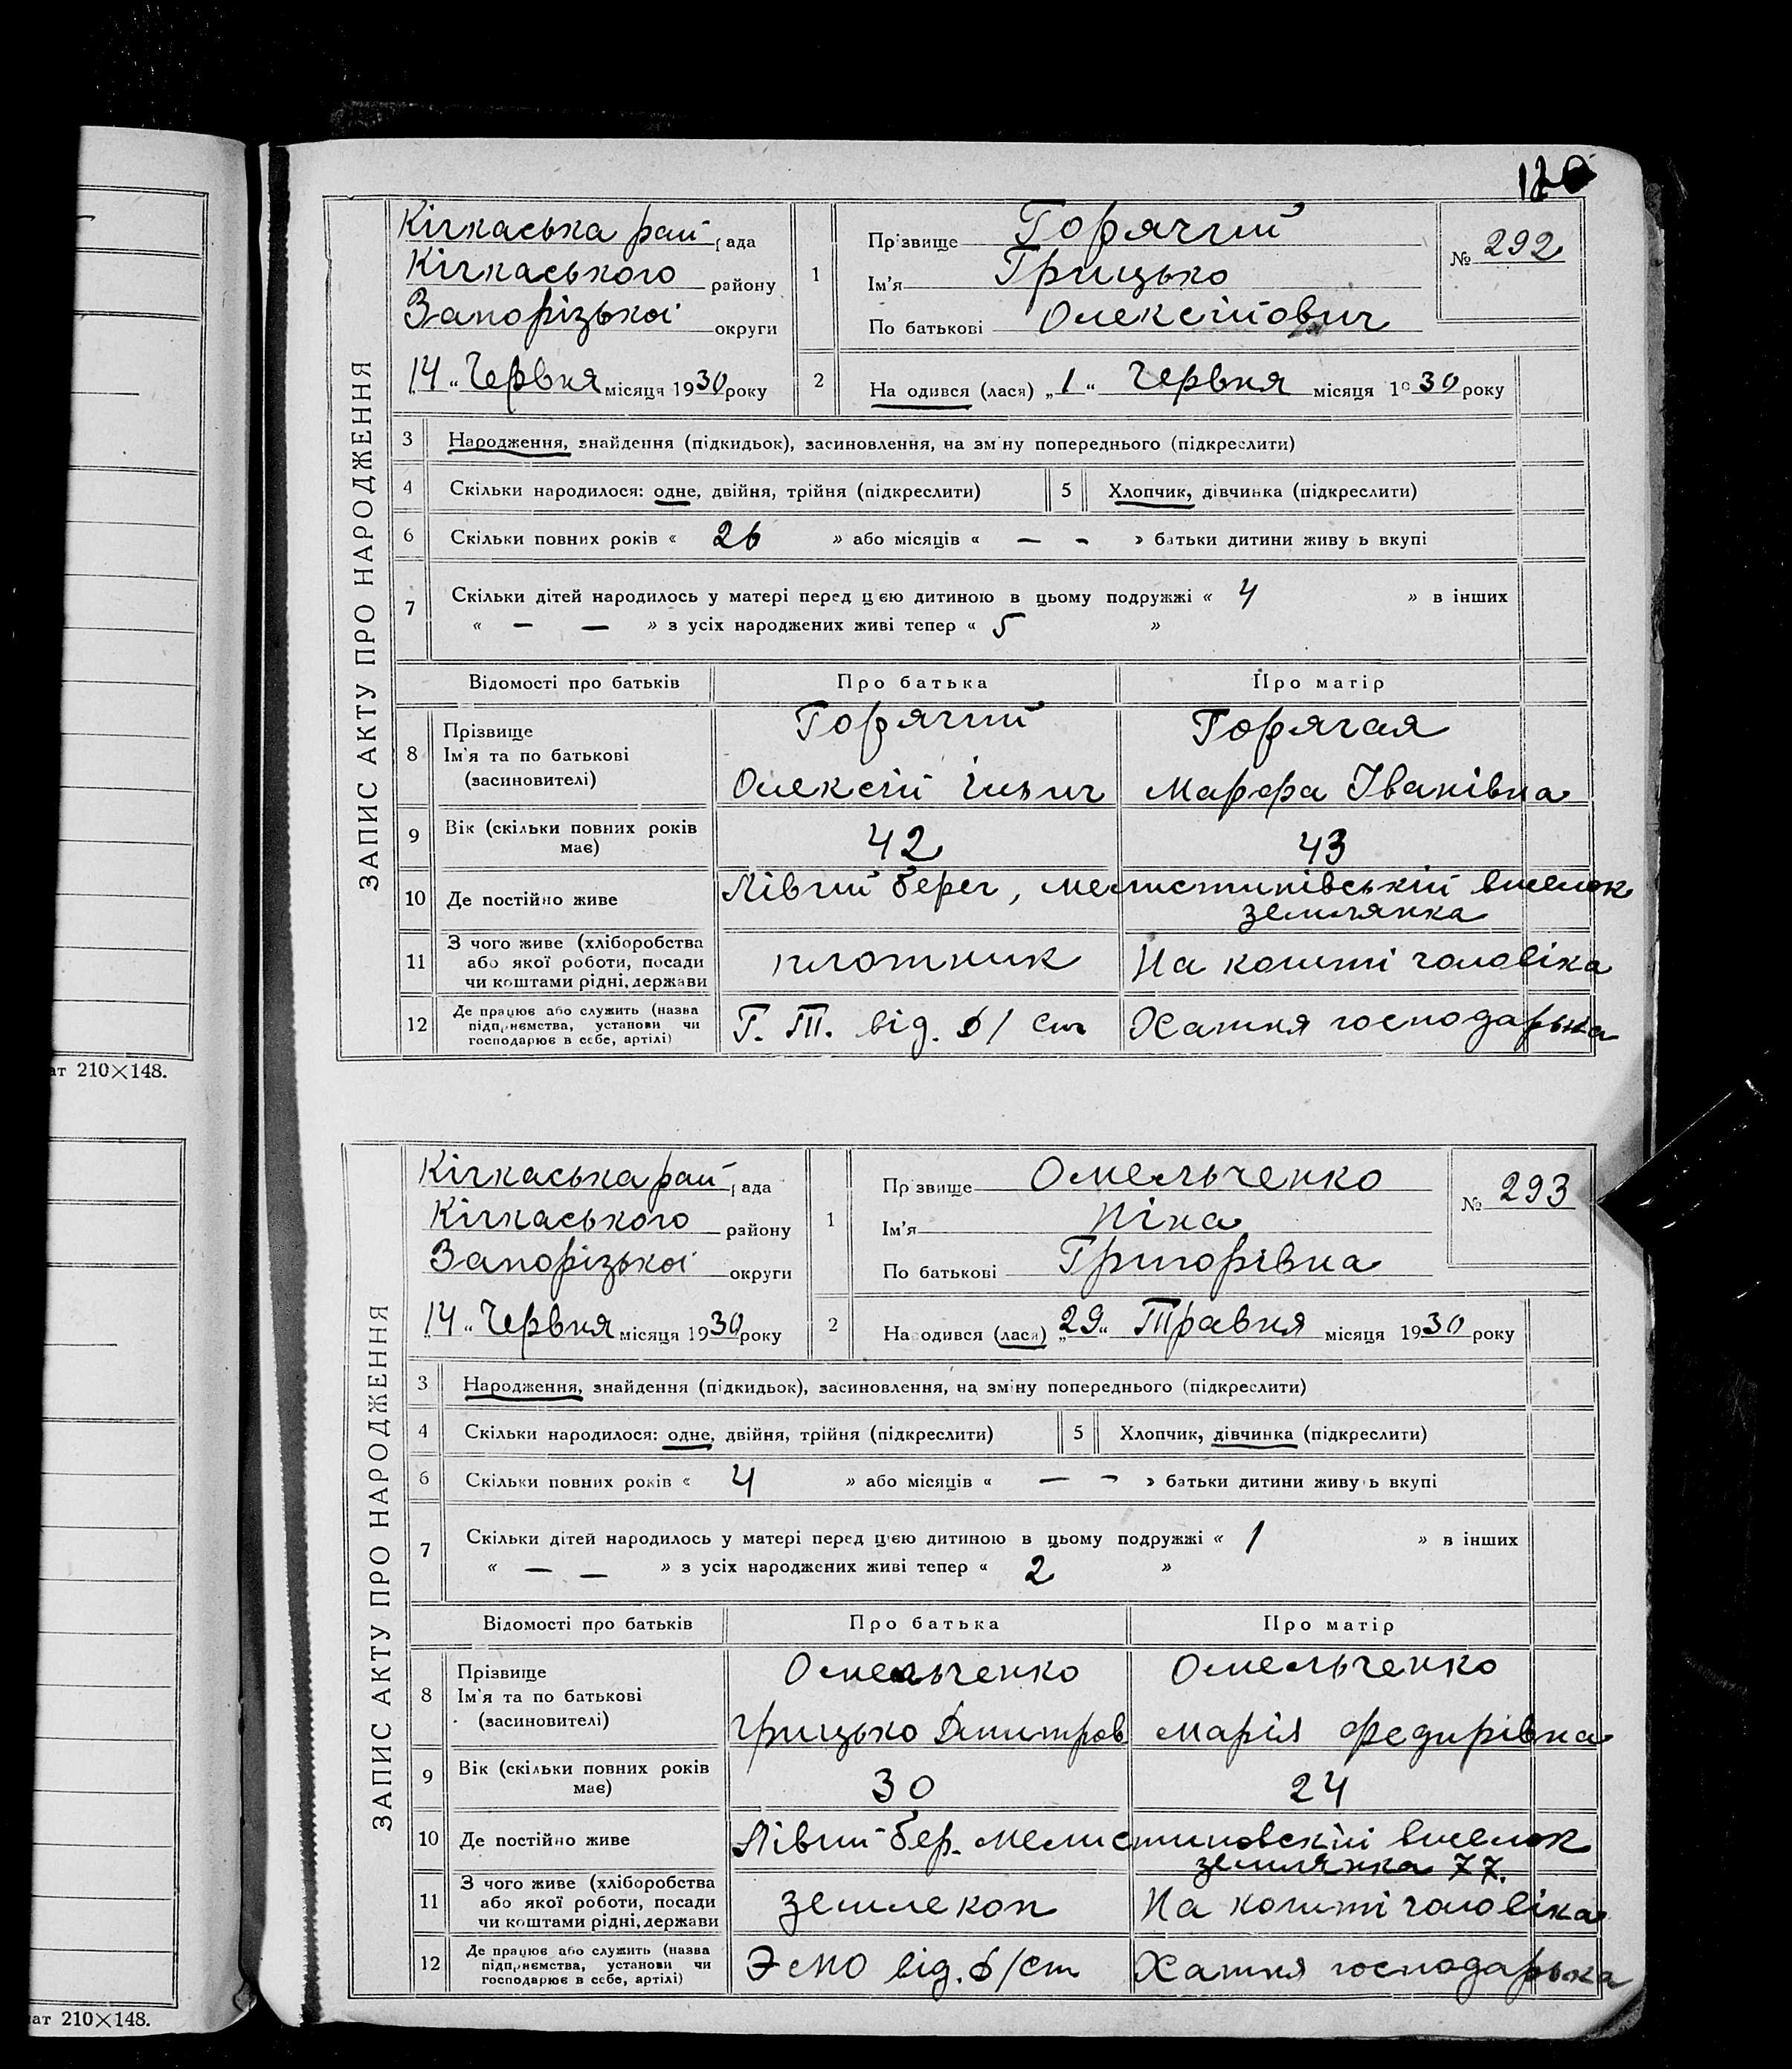 ат 210×148.
ат 210×148.
ЗАПИС АКТУ ПРО НАРОДЖЕННЯ
Кічкаська рай рада
Кічкаського району
Запорізької округи
„14“ Червня місяця 1930 року
1
Прізвище Горячий
Ім'я Грицько
По батькові Олексійович
№ 292
2
Народився (лася) „1“ Червня місяця 1930 року
3 Народження, знайдення (підкидьок), засиновлення, на зміну попереднього (підкреслити)
4 Скільки народилося: одне, двійня, трійня (підкреслити) 5 Хлопчик, дівчинка (підкреслити)
6 Скільки повних років « 26 » або місяців « — - » батьки дитини живуть вкупі
7 Скільки дітей народилось у матері перед цією дитиною в цьому подружжі « 4 » в інших
« — — » з усіх народжених живі тепер « 5 »
Відомості про батьків Про батька Про матір
8 Прізвище
Ім'я та по батькові
(засиновителі)
Горячий
Олексій Ілльич
Горячая
Марфа Іванівна
9 Вік (скільки повних років
має)
42 43
10 Де постійно живе Лівий берег, виселок
землянка
11 З чого живе (хліборобства
або якої роботи, посади
чи коштами рідні, держави
плотник На кошті чоловіка
12 Де працює або служить (назва
підприємства, установи чи
господарює в себе, артілі)
Г. Т. від. б/ст Хатня господарька
ЗАПИС АКТУ ПРО НАРОДЖЕННЯ
Кічкаська рай рада
Кічкаського району
Запорізької округи
„14“ Червня місяця 1930 року
1
Прізвище Омельченко
Ім'я Ніна
По батькові Григорівна
№ 293
2
Народився (лася) „29“ Травня місяця 1930 року
3 Народження, знайдення (підкидьок), засиновлення, на зміну попереднього (підкреслити)
4 Скільки народилося: одне, двійня, трійня (підкреслити) 5 Хлопчик, дівчинка (підкреслити)
6 Скільки повних років « 4 » або місяців « — - » батьки дитини живуть вкупі
7 Скільки дітей народилось у матері перед цією дитиною в цьому подружжі « 1 » в інших
« — — » з усіх народжених живі тепер « 2 »
Відомості про батьків Про батька Про матір
8 Прізвище
Ім'я та по батькові
(засиновителі)
Омельченко
Грицько Дмитров
Омельченко
Марія Федирівна
9 Вік (скільки повних років
має)
30 24
10 Де постійно живе Лівий бер. виселок
землянка 77.
11 З чого живе (хліборобства
або якої роботи, посади
чи коштами рідні, держави
землекоп На кошті чоловіка
12 Де працює або служить (назва
підприємства, установи чи
господарює в себе, артілі)
від. б/ст Хатня господарька